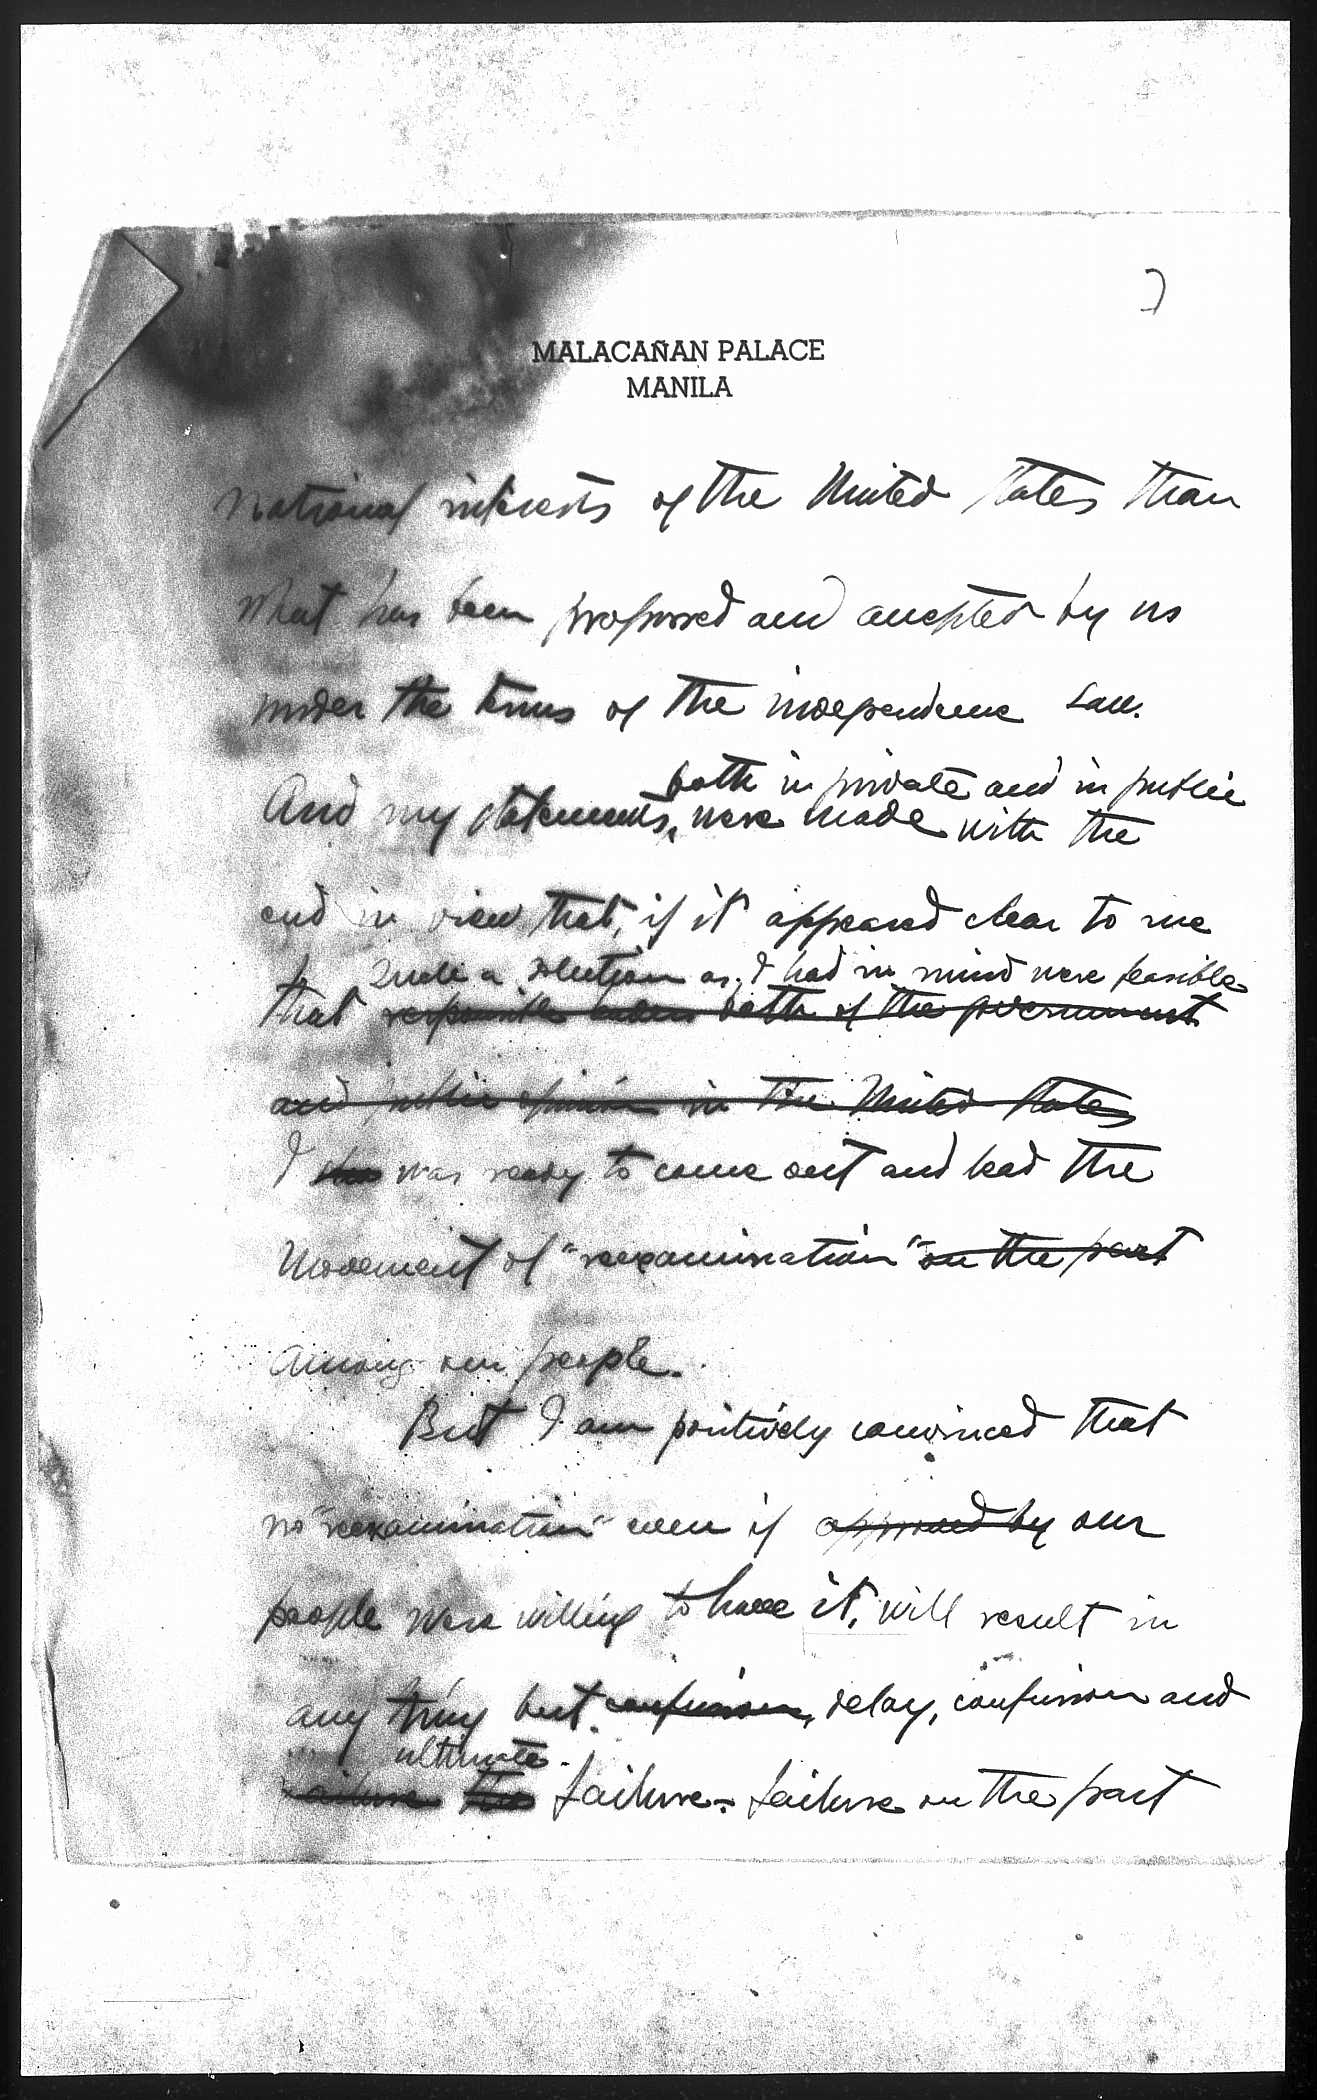 7
MALACAÑAN PALACE
MANILA
national interests of the United States than
what has been proposed and accepted by us
under the terms of the independence Law.
both in private and in public
And my statements, were made with the
end in view that, if it appeared clear to me
such a solution as I had in mind were feasible
that responsible both of the government
and public opinion in the United States
I was ready to come out and lead the
Movement of "reexamination" on the part
among our people.
But I am positively convinced that
no "reexamination" even if approved by our
people were willing to have it, will result in
any thing but confusion, delay, confusion and
ultimate
failure the failure - failure on the part